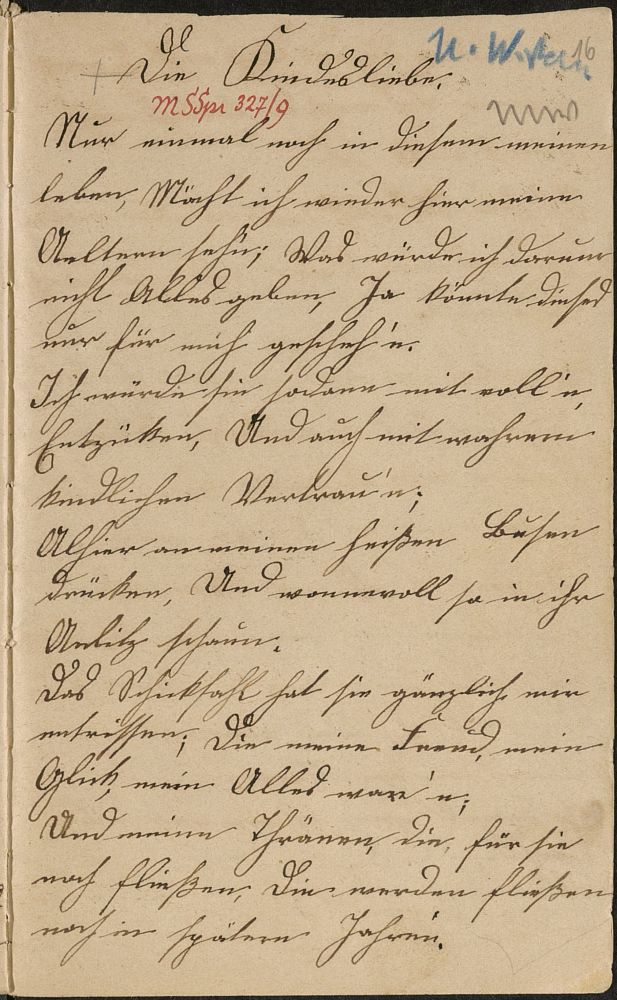 Die Kindesliebe.
16
MSSpr 327/9
Nur einmal noch in diesem meinen
leben, Möcht ich wieder hier meine
Aeltern seh'n; Was würde ich darum
nicht Alles geben, Ja könnte dieses
nur für mich gescheh'n.
Ich würde sie sodann mit voll'n
Entzücken, Und auch mit wahrem
kindlichen Vertrau'n;
Alhier an meinen heißen Busen
drücken, Und wonnevoll so in ihr
Antlitz schaun.
Das Schicksahl hat sie gänzlich mir
entrissen; Die meine Freud, mein
Glück, mein Alles war'n;
Und meine Thränen, die, für sie
noch fließen, Die werden fließen
noch in spätern Jahren.